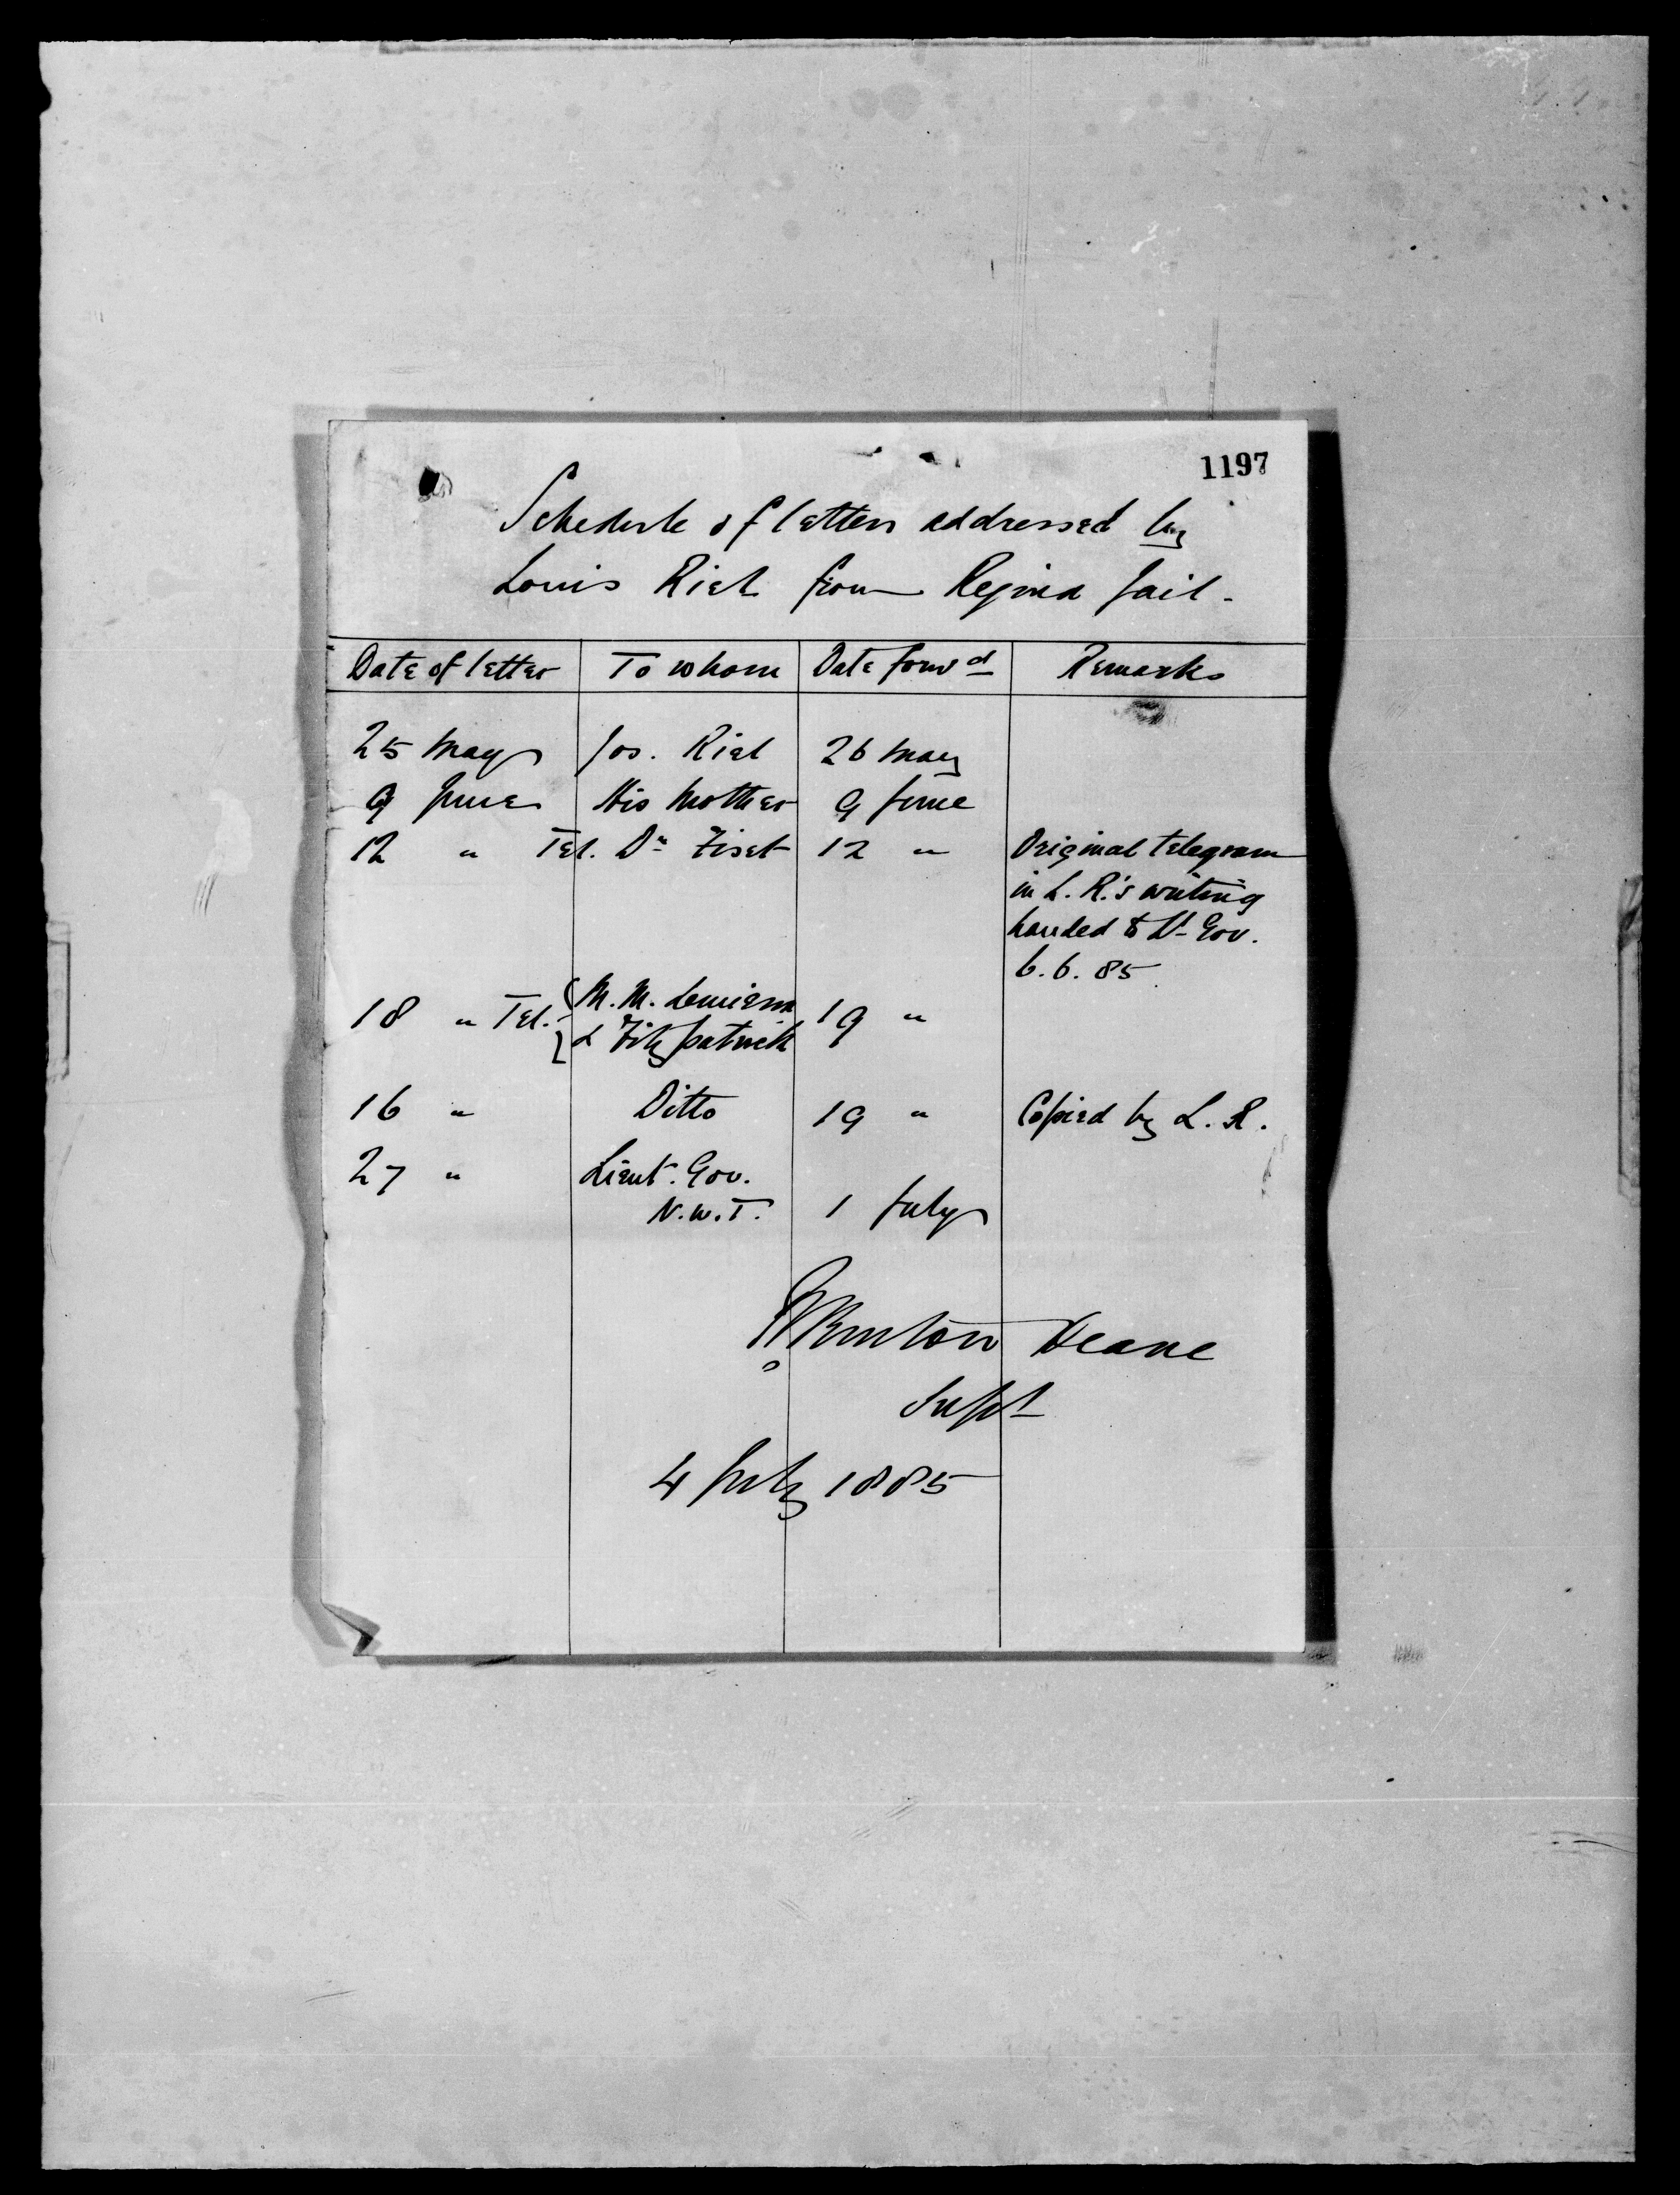 1197
Schedule of letters addressed by
Louis Riel from Regina Jail -
Date of letter To whom Date forwd Remarks
25 May Jos. Riel 26 May
9 June His Mother 9 June
12 " Tel. Dr Fiset 12 " Original telegram
in L. R.'s writing
handed to Lt Gov.
6. 6. 85
18 " Tel. M. M. Lemieux & Fitzpatrick 19 "
16 " Ditto 19 " Copied by L. R.
27 " Lieut. Gov.
N.W.T. 1 July
Burton Deane
Supt
4 July 1885